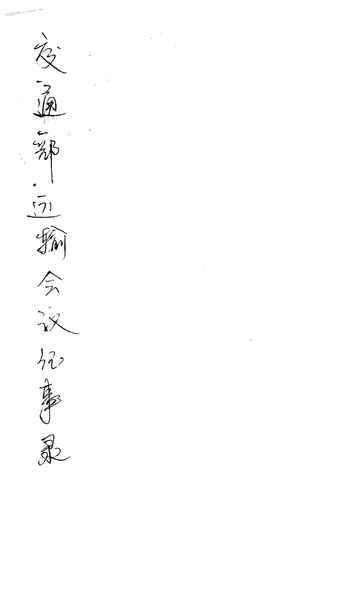 交通部运输会议纪事录